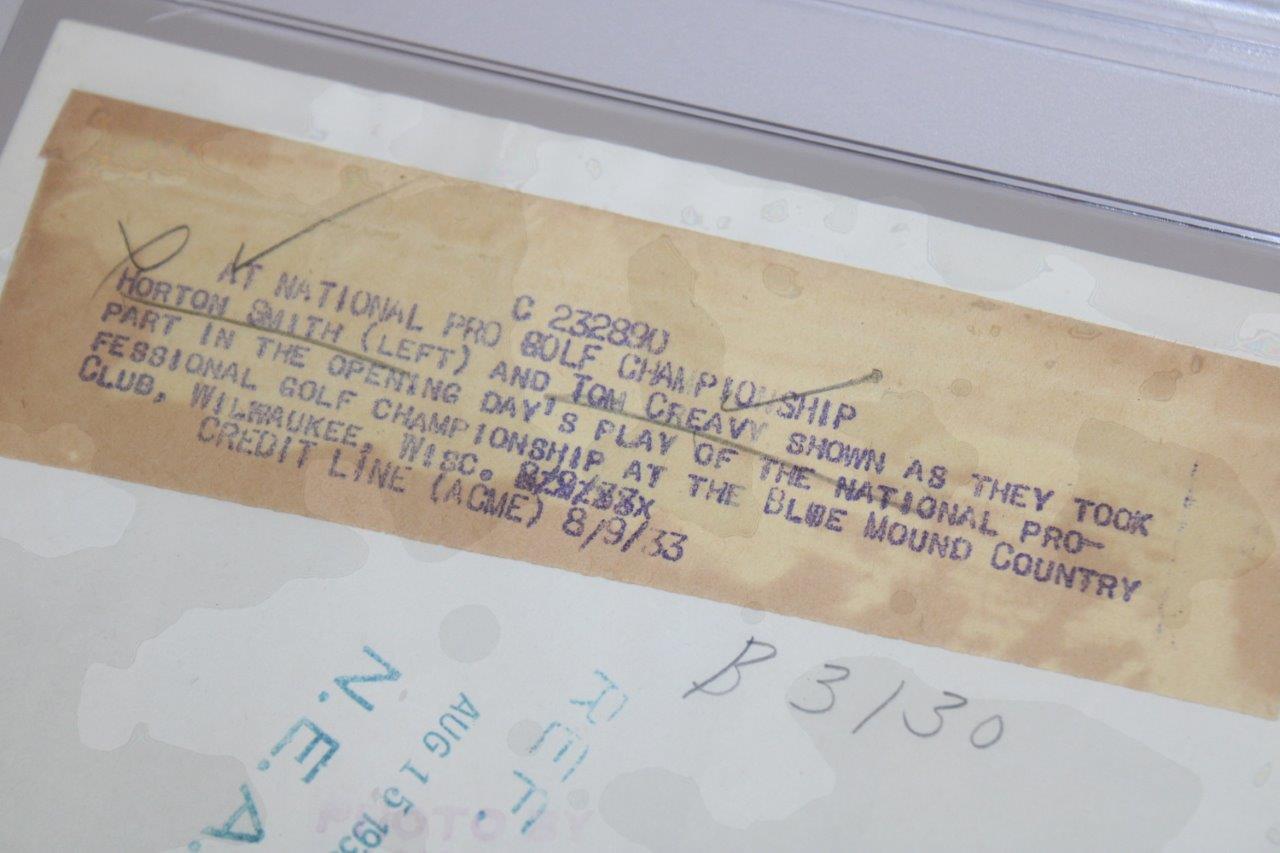 C 232890
AT NATIONAL PRO GOLF CHAMPIONSHIP
HORTON SMITH (LEFT) AND TOM CREAVY SHOWN AS THEY TOOK
PART IN THE OPENING DAY'S PLAY OF THE NATIONAL PRO-
FESSIONAL GOLF CHAMPIONSHIP AT THE BLUE MOUND COUNTRY
CLUB, WILMAUKEE, WISC.
CREDIT LINE (ACME) 8/9/33
B 3130
REF.
AUG 15 193
N.E.A.
PHOTO BY